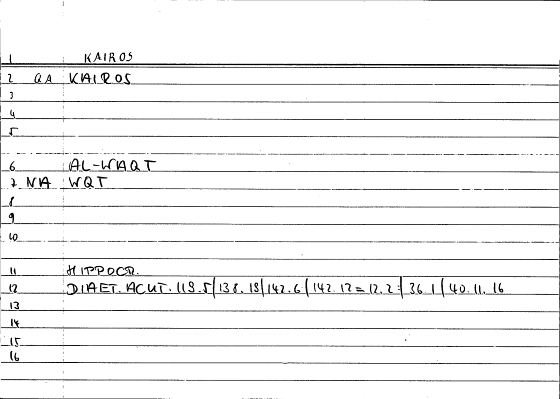 1 KAIROS
2 GA KAIROS
3
4
5
6 AL-WAQT
7 NA WQT
8
9
10
11 HIPPOCR.
12 DIAET. ACUT. 119.5/138.18/142.6/142.12=12.2:/36.1/40.11.16
13
14
15
16